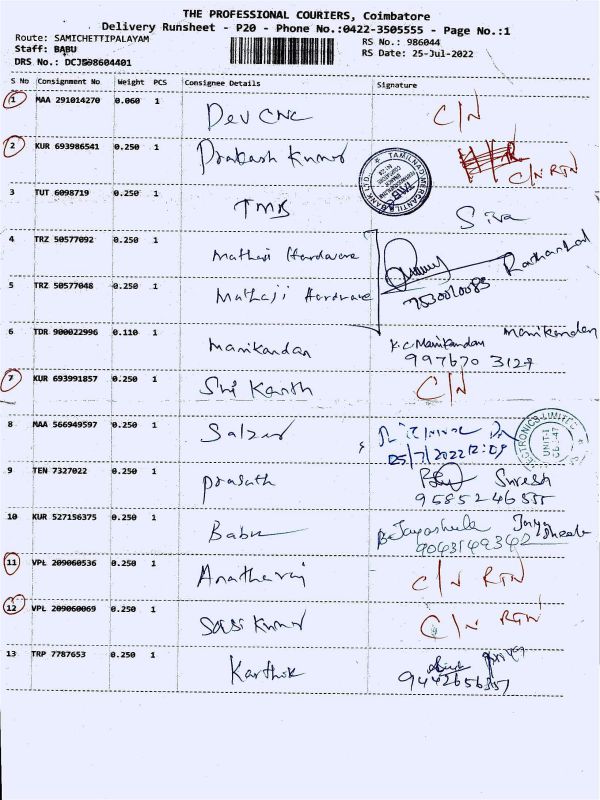 THE PROFESSIONAL COURIERS, Coimbatore
Delivery Runsheet - P20 - Phone No.:0422-3505555 - Page No.:1
Route: SAMICHETTIPALAYAM RS No.: 986044
Staff: BABU RS Date: 25-Jul-2022
DRS No.: DCJS98604401
S No Consignment No Weight PCS Consignee Details Signature
1 MAA 291014270 0.060 1 Dev CNC C/N
2 KUR 693986541 0.250 1 Prakash Kumar C/N RTN
3 TUT 6098719 0.250 1 TMB Siva
TAMILNAD MERCANTILE BANK LTD.
4 TRZ 50577092 0.250 1 Mathaji Hardware
5 TRZ 50577048 0.250 1 Mathaji Hardware 7530020085
6 TDR 900022996 0.110 1 Manikandan K.C. Manikandan Manikandan
997670 3127
7 KUR 693991857 0.250 1 Shri Kanth C/N
8 MAA 566949597 0.250 1 Salzer
25/7/2022 12:09
UNIT-I
9 TEN 7327022 0.250 1 Prasath Suresh
95852 46555
10 KUR 527156375 0.250 1 Babu B. Jayasheela Jayasheela
9043149342
11 VPL 209060536 0.250 1 Anatharaj C/N RTN
12 VPL 209060069 0.250 1 Sasi Kumar C/N RTN
13 TRP 7787653 0.250 1 Karthik
9442656557